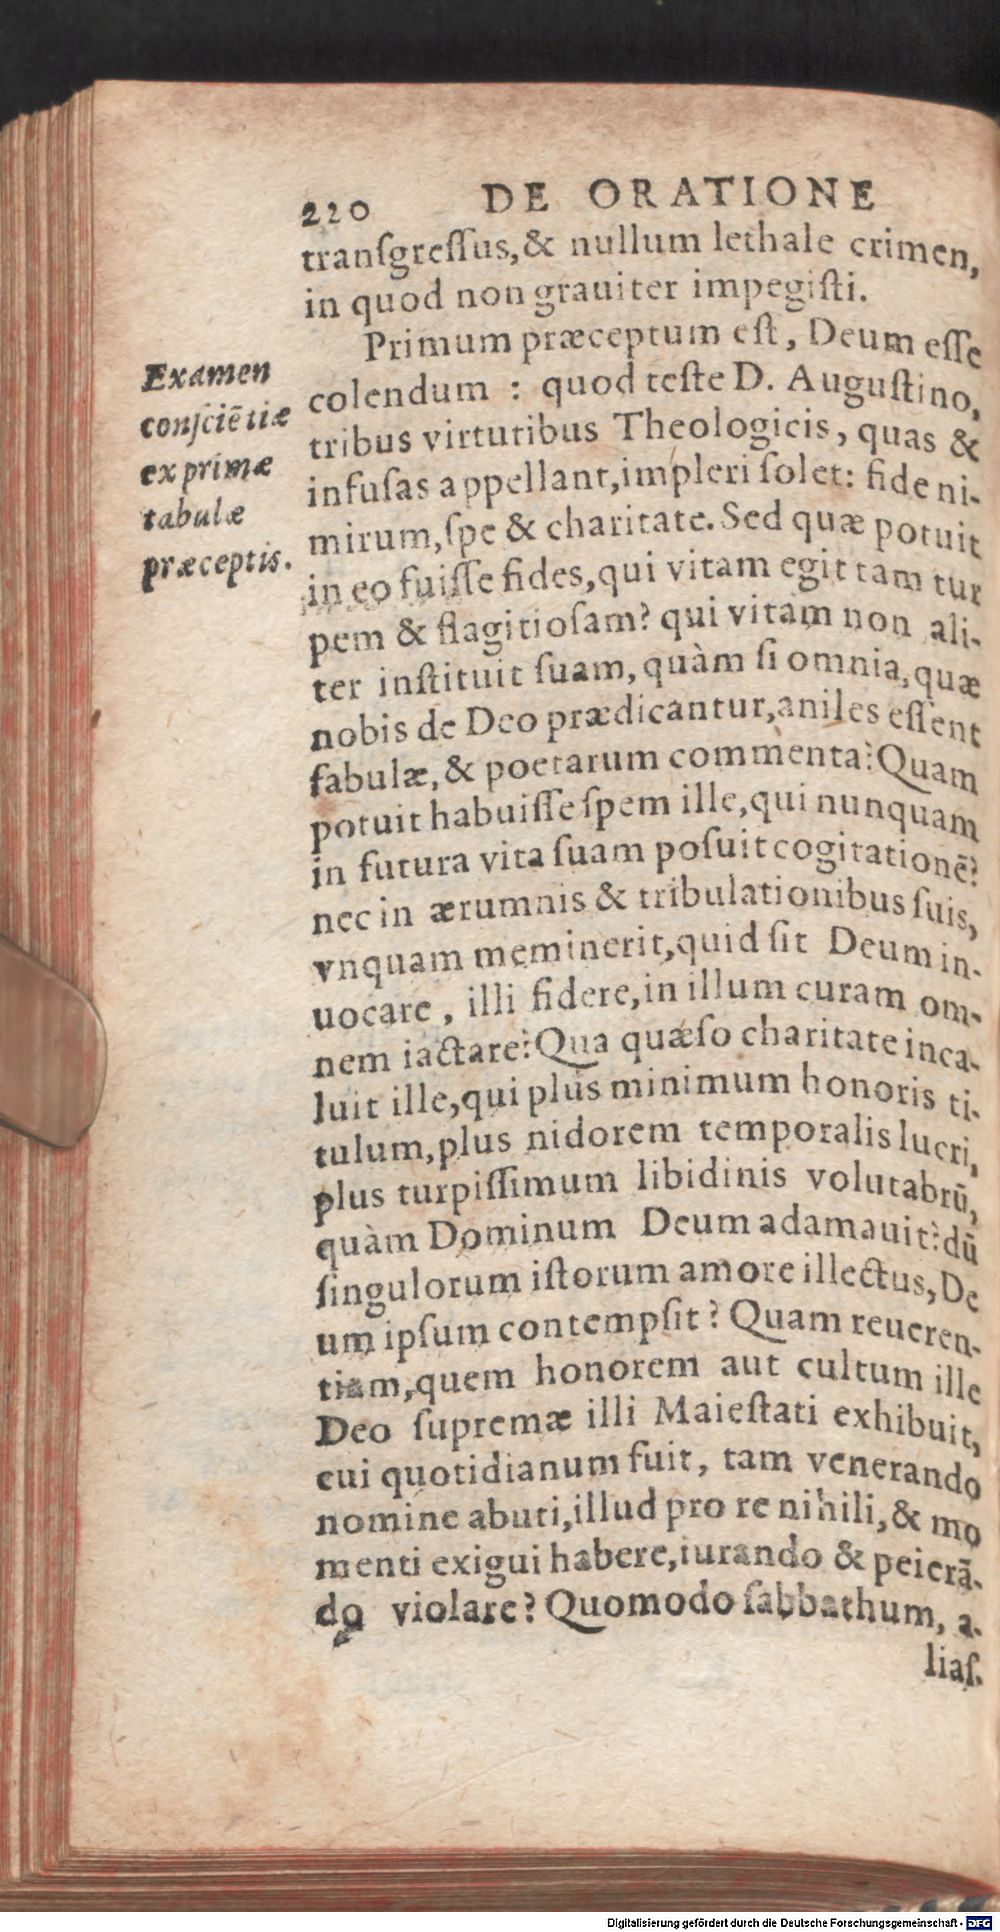 220 DE ORATIONE
tranſgreſſus,& nullum lethale crimen,
in quod non grauiter impegiſti.
Primum præceptum eſt, Deum eſſe
colendum : quod teſte D. Auguſtino,
tribus virtutibus Theologicis, quas &
infuſas appellant,impleri ſolet: fide ni-
mirum,ſpe & charitate. Sed quæ potuit
in eo fuiſſe fides,qui vitam egit tam tur
pem & flagitioſam? qui vitam non ali-
ter inſtituit ſuam, quàm ſi omnia, quæ
nobis de Deo prædicantur,aniles eſſent
fabulæ,& poetarum commenta? Quam
potuit habuiſſe ſpem ille,qui nunquam
in futura vita ſuam poſuit cogitationē?
nec in ærumnis & tribulationibus ſuis,
vnquam meminerit,quid ſit Deum in-
uocare , illi fidere,in illum curam om-
nem iactare? Qua quæſo charitate inca-
luit ille,qui plus minimum honoris ti-
tulum,plus nidorem temporalis lucri,
plus turpiſſimum libidinis volutabrū,
quàm Dominum Deum adamauit? dū
ſingulorum iſtorum amore illectus, De
um ipſum contempſit? Quam reueren-
tiam,quem honorem aut cultum ille
Deo ſupremæ illi Maieſtati exhibuit,
cui quotidianum fuit, tam venerando
nomine abuti,illud pro re nihili,& mo
menti exigui habere,iurando & peierā-
do violare? Quomodo ſabbathum, a-
liaſ.
Examen
conſciētiæ
ex primæ
tabulæ
præceptis.
Digitalisierung gefördert durch die Deutsche Forschungsgemeinschaft - DFG